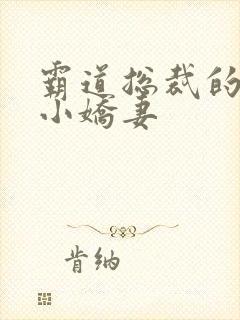 霸道总裁的
小嬌妻
肯纳